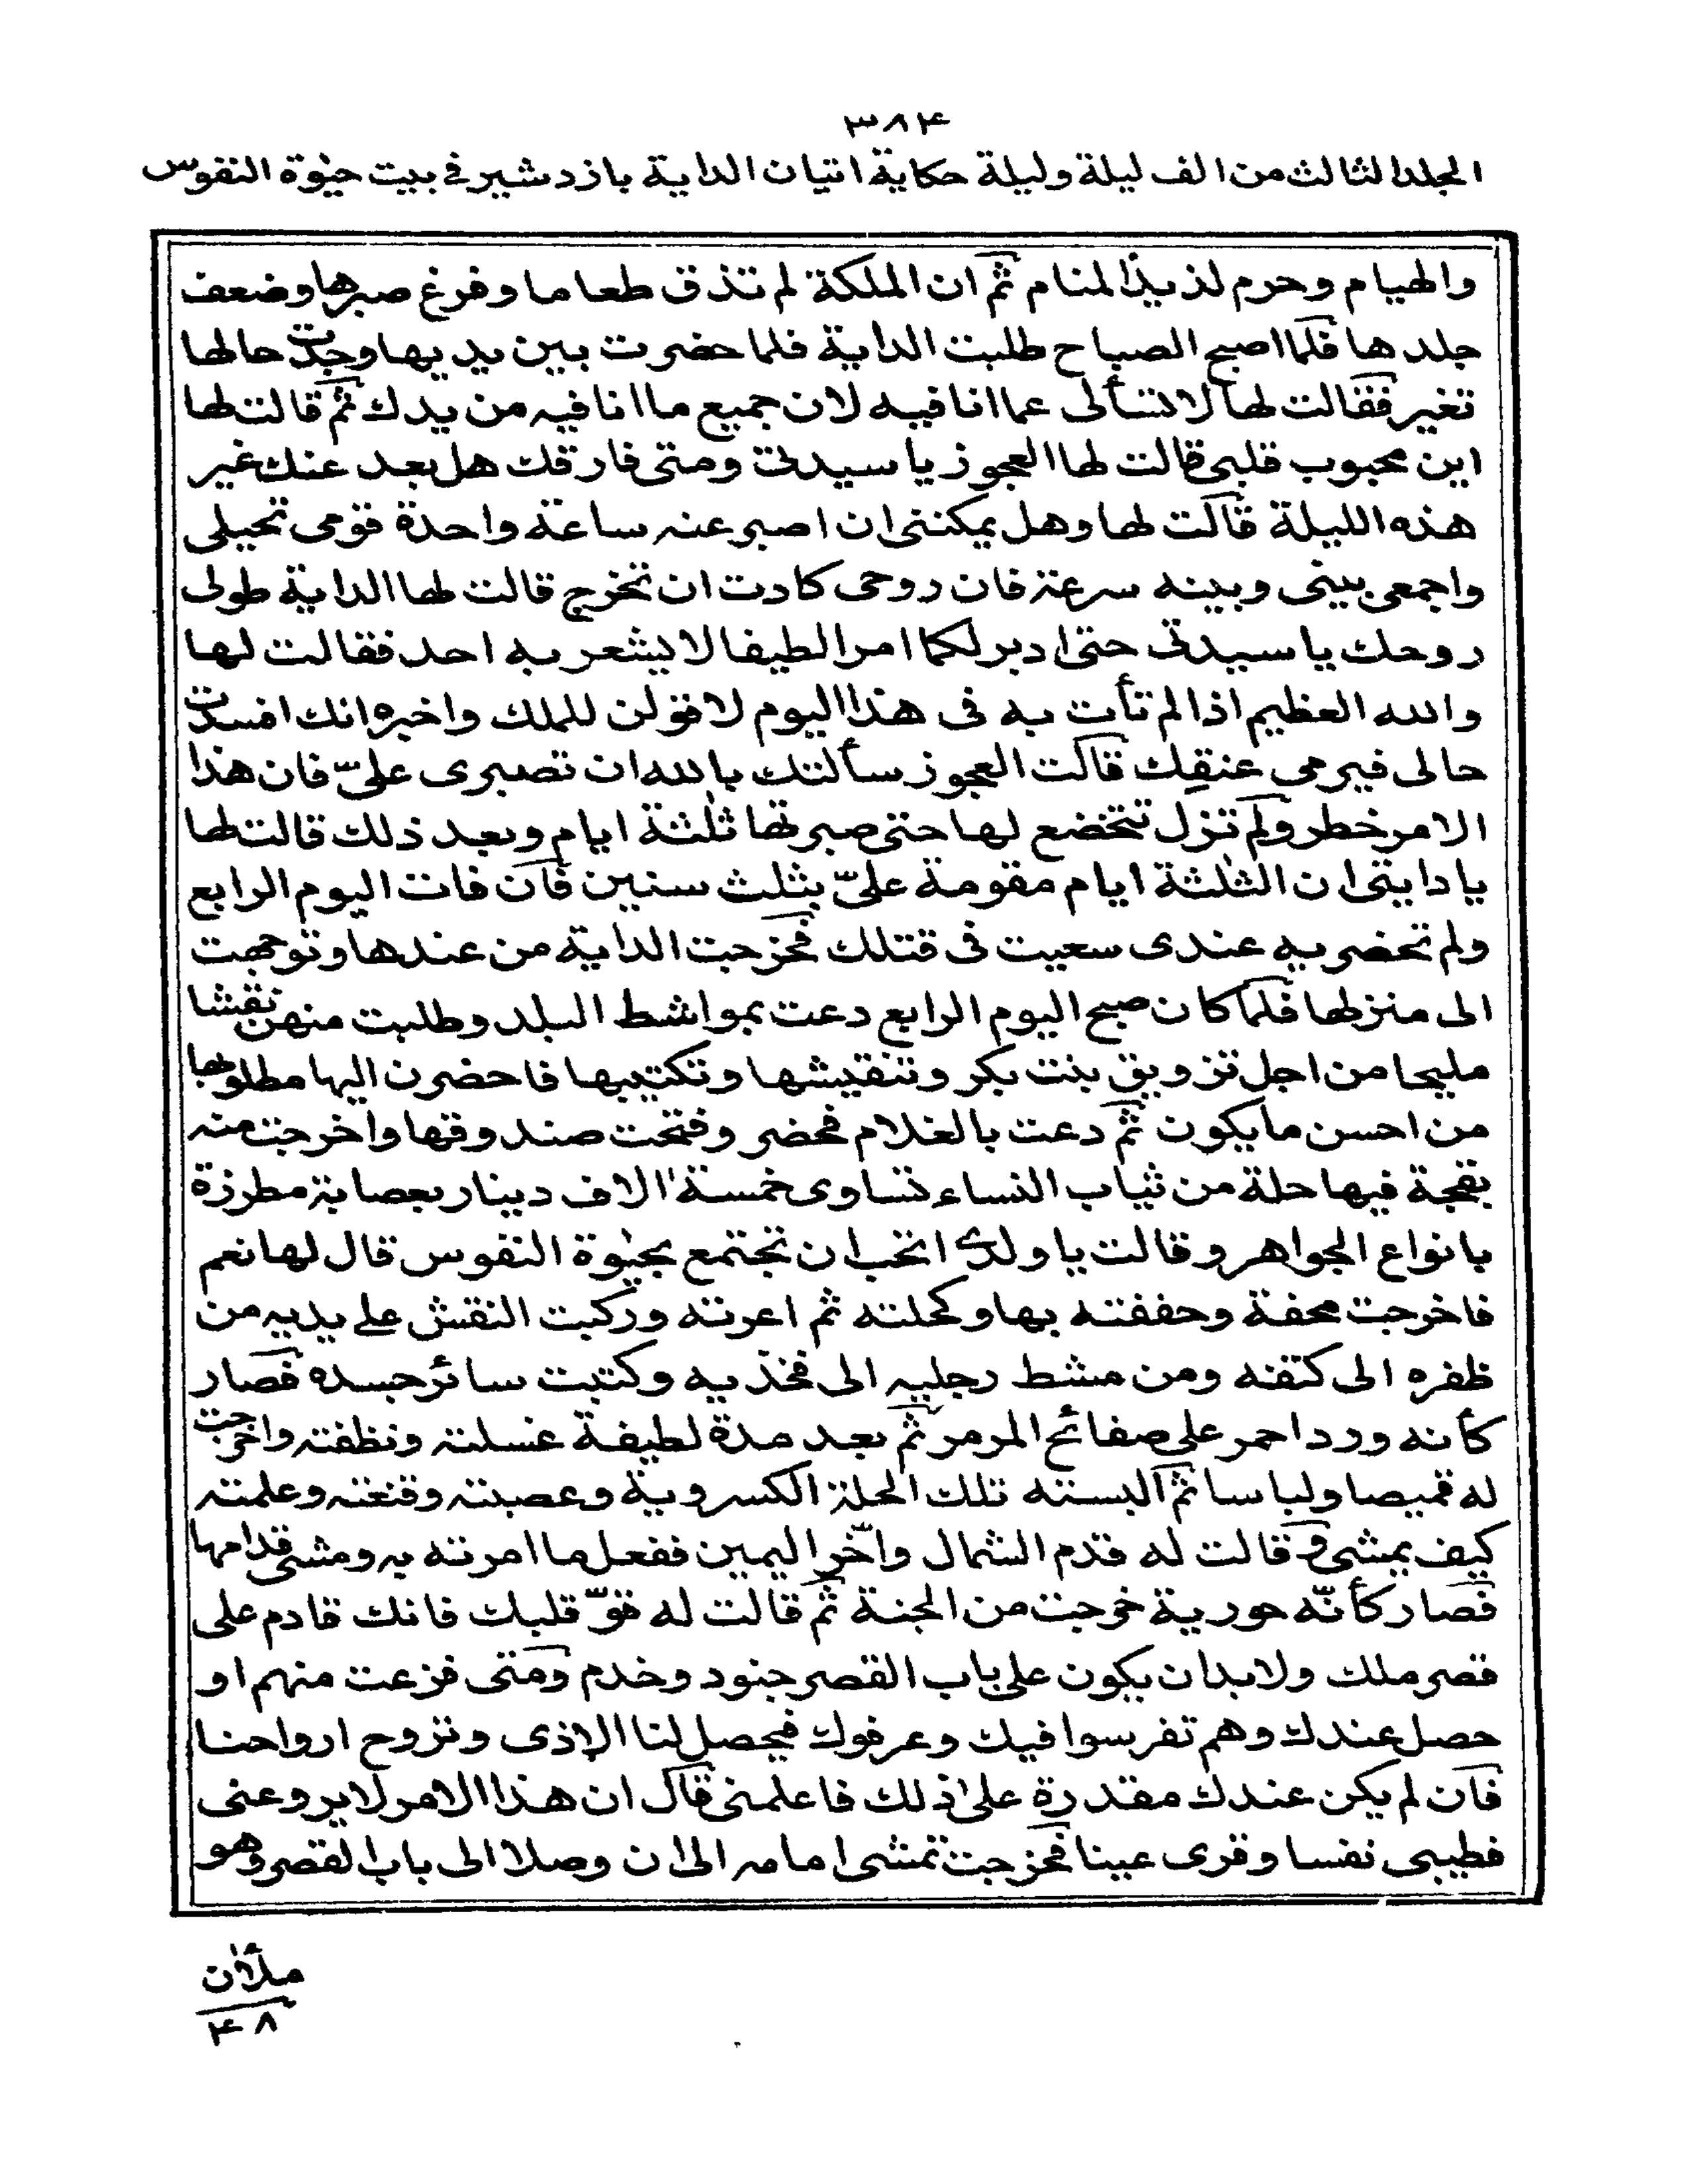 ٣٨٤
المجلد الثالث من الف ليلة وليلة حكاية اتيان الداية بازدشير في بيت حيٰوة النفوس
والهيام وحرم لذيذ المنام ثم ان الملكة لم تذق طعاما وفرغ صبرها وضعف
جلدها فلما اصبح الصباح طلبت الداية فلما حضرت بين يديها وجدت حالها
تغير فقالت لها لا تسألى عما انا فيه لان جميع ما انا فيه من يدك ثم قالت لها
اين محبوب قلبى قالت لها العجوز يا سيدتى ومتى فارقك هل بعد عنك غير
هذه الليلة قالت لها وهل يمكننى ان اصبر عنه ساعة واحدة قومى تحيلى
واجمعى بينى وبينه سرعة فان روحى كادت ان تخرج قالت لها الداية طولى
روحك يا سيدتى حتى ادبر لكما امرا لطيفا لا يشعر به احد فقالت لها
والله العظيم اذا لم تأت به فى هذا اليوم لاقولن للملك واخبره انك افسدت
حالى فيرمى عنقك قالت العجوز سألتك بالله ان تصبرى علىّ فان هذا
الامر خطر ولم تزل تتخضع لها حتى صبرتها ثلٰثة ايام وبعد ذلك قالت لها
يا دايتى ان الثلٰثة ايام مقومة علىّ بثلث سنين فان فات اليوم الرابع
ولم تحضر به عندى سعيت فى قتلك فخرجت الداية من عندها وتوجهت
الى منزلها فلما كان صبح اليوم الرابع دعت بمواشط البلد وطلبت منهن نقشا
مليحا من اجل تزويق بنت بكر وتنقيشها وتكتيبها فاحضرن اليها مطلوبها
من احسن ما يكون ثم دعت بالغلام فحضر وفتحت صندوقها واخرجت منه
بقجة فيها حلة من ثياب النساء تساوى خمسة الاف دينار بعصابة مطرزة
بانواع الجواهر وقالت يا ولدى اتحب ان تجتمع بحيٰوة النفوس قال لها نعم
فاخرجت محفة وحففته بها وكحلته ثم اعرته وركبت النقش على يديه من
ظفره الى كتفه ومن مشط رجليه الى فخذيه وكتبت سائر جسده فصار
كأنه ورد احمر على صفائح المرمر ثم بعد مدة لطيفة غسلته ونظفته واخرجت
له قميصا ولباسا ثم البسته تلك الحلة الكسروية وعصبته وقنعته وعلمته
كيف يمشى وقالت له قدم الشمال واخّر اليمين ففعل ما امرته به ومشى قدامها
فصار كأنّه حورية خرجت من الجنة ثم قالت له قوّ قلبك فانك قادم على
قصر ملك ولا بد ان يكون على باب القصر جنود وخدم ومتى فزعت منهم او
حصل عندك وهم تفرسوا فيك وعرفوك فيحصل لنا الاذى وتروح ارواحنا
فان لم يكن عندك مقدرة على ذلك فاعلمنى قال ان هذا الامر لا يروعنى
فطيبى نفسا وقرى عينا فخرجت تمشى امامه الى ان وصلا الى باب القصر وهو
ملأن
٤٨